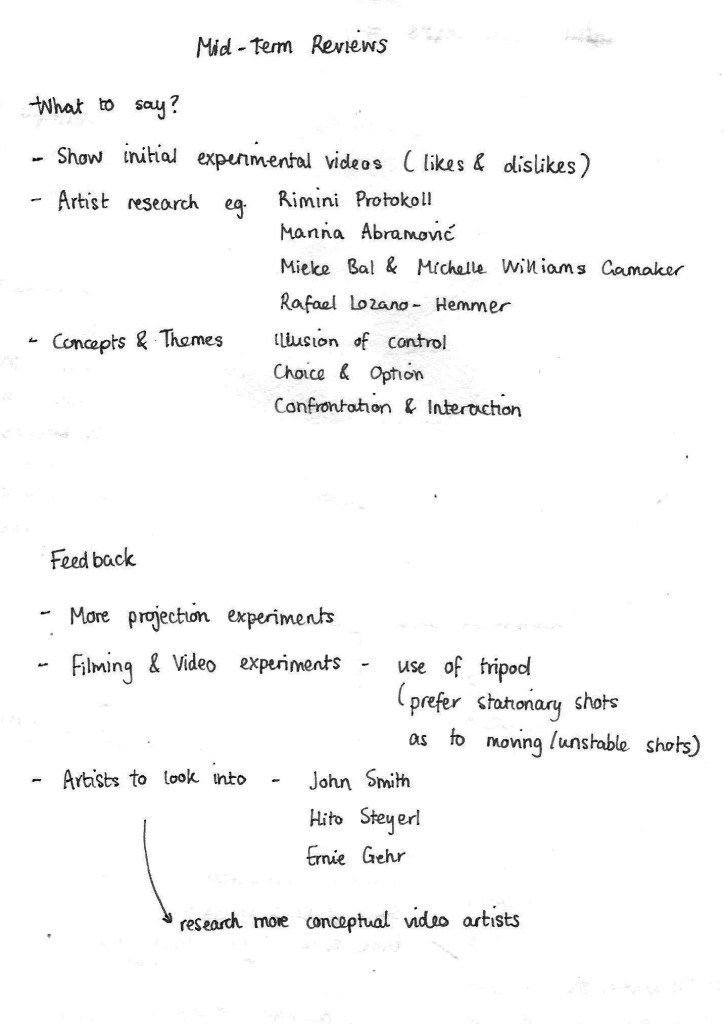 Mid-Term Reviews
What to say?
- Show initial experimental videos (likes & dislikes)
- Artist research eg. Rimini Protokoll
Marina Abramović
Mieke Bal & Michelle Williams Gamaker
Rafael Lozano-Hemmer
- Concepts & Themes Illusion of control
Choice & Option
Confrontation & Interaction
Feedback
- More projection experiments
- Filming & Video experiments - use of tripod
(prefer stationary shots
as to moving/unstable shots)
- Artists to look into - John Smith
Hito Steyerl
Ernie Gehr
research more conceptual video artists